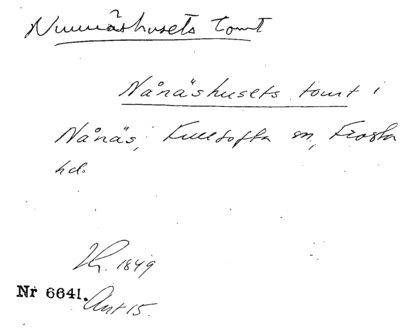 Nunnäshusets tomt
Nånäshusets tomt i
Nånäs, Fulltofta sn, Frosta
hd.
1849
Nr 6641.
Ant 15.